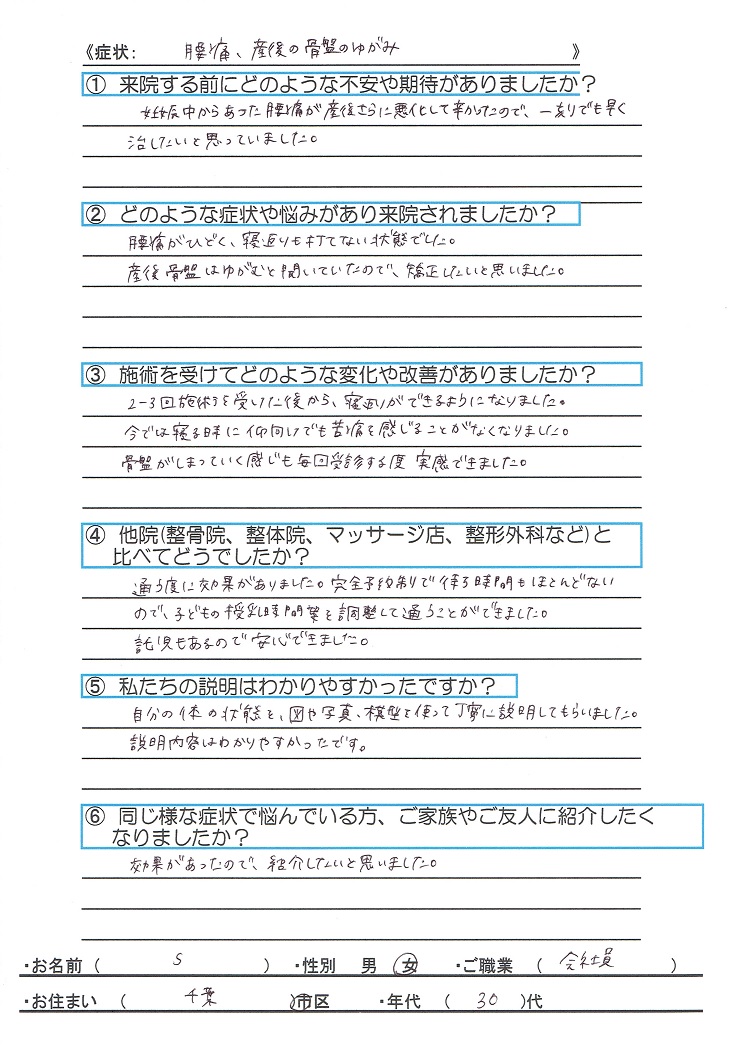 《症状： 腰痛、産後の骨盤のゆがみ 》
① 来院する前にどのような不安や期待がありましたか？
妊娠中からあった腰痛が産後さらに悪化して辛かったので、一刻でも早く
治したいと思っていました。
② どのような症状や悩みがあり来院されましたか？
腰痛がひどく、寝返りも打てない状態でした。
産後骨盤はゆがむと聞いていたので、矯正したいと思いました。
③ 施術を受けてどのような変化や改善がありましたか？
2-3回施術を受けた後から、寝返りができるようになりました。
今では寝る時に仰向けでも苦痛を感じることがなくなりました。
骨盤がしまっていく感じも毎回受診する度 実感できました。
④ 他院(整骨院、整体院、マッサージ店、整形外科など)と
比べてどうでしたか？
通う度に効果がありました。完全予約制で待つ時間もほとんどない
ので、子どもの授乳時間等を調整して通うことができました。
託児もあるので安心できました。
⑤ 私たちの説明はわかりやすかったですか？
自分の体の状態を、図や写真、模型を使って丁寧に説明してもらいました。
説明内容はわかりやすかったです。
⑥ 同じ様な症状で悩んでいる方、ご家族やご友人に紹介したく
なりましたか？
効果があったので、紹介したいと思いました。
・お名前 （ S ） ・性別 男 女 ・ご職業 （ 会社員 ）
・お住まい （ 千葉 ）市区 ・年代 （ 30 ）代